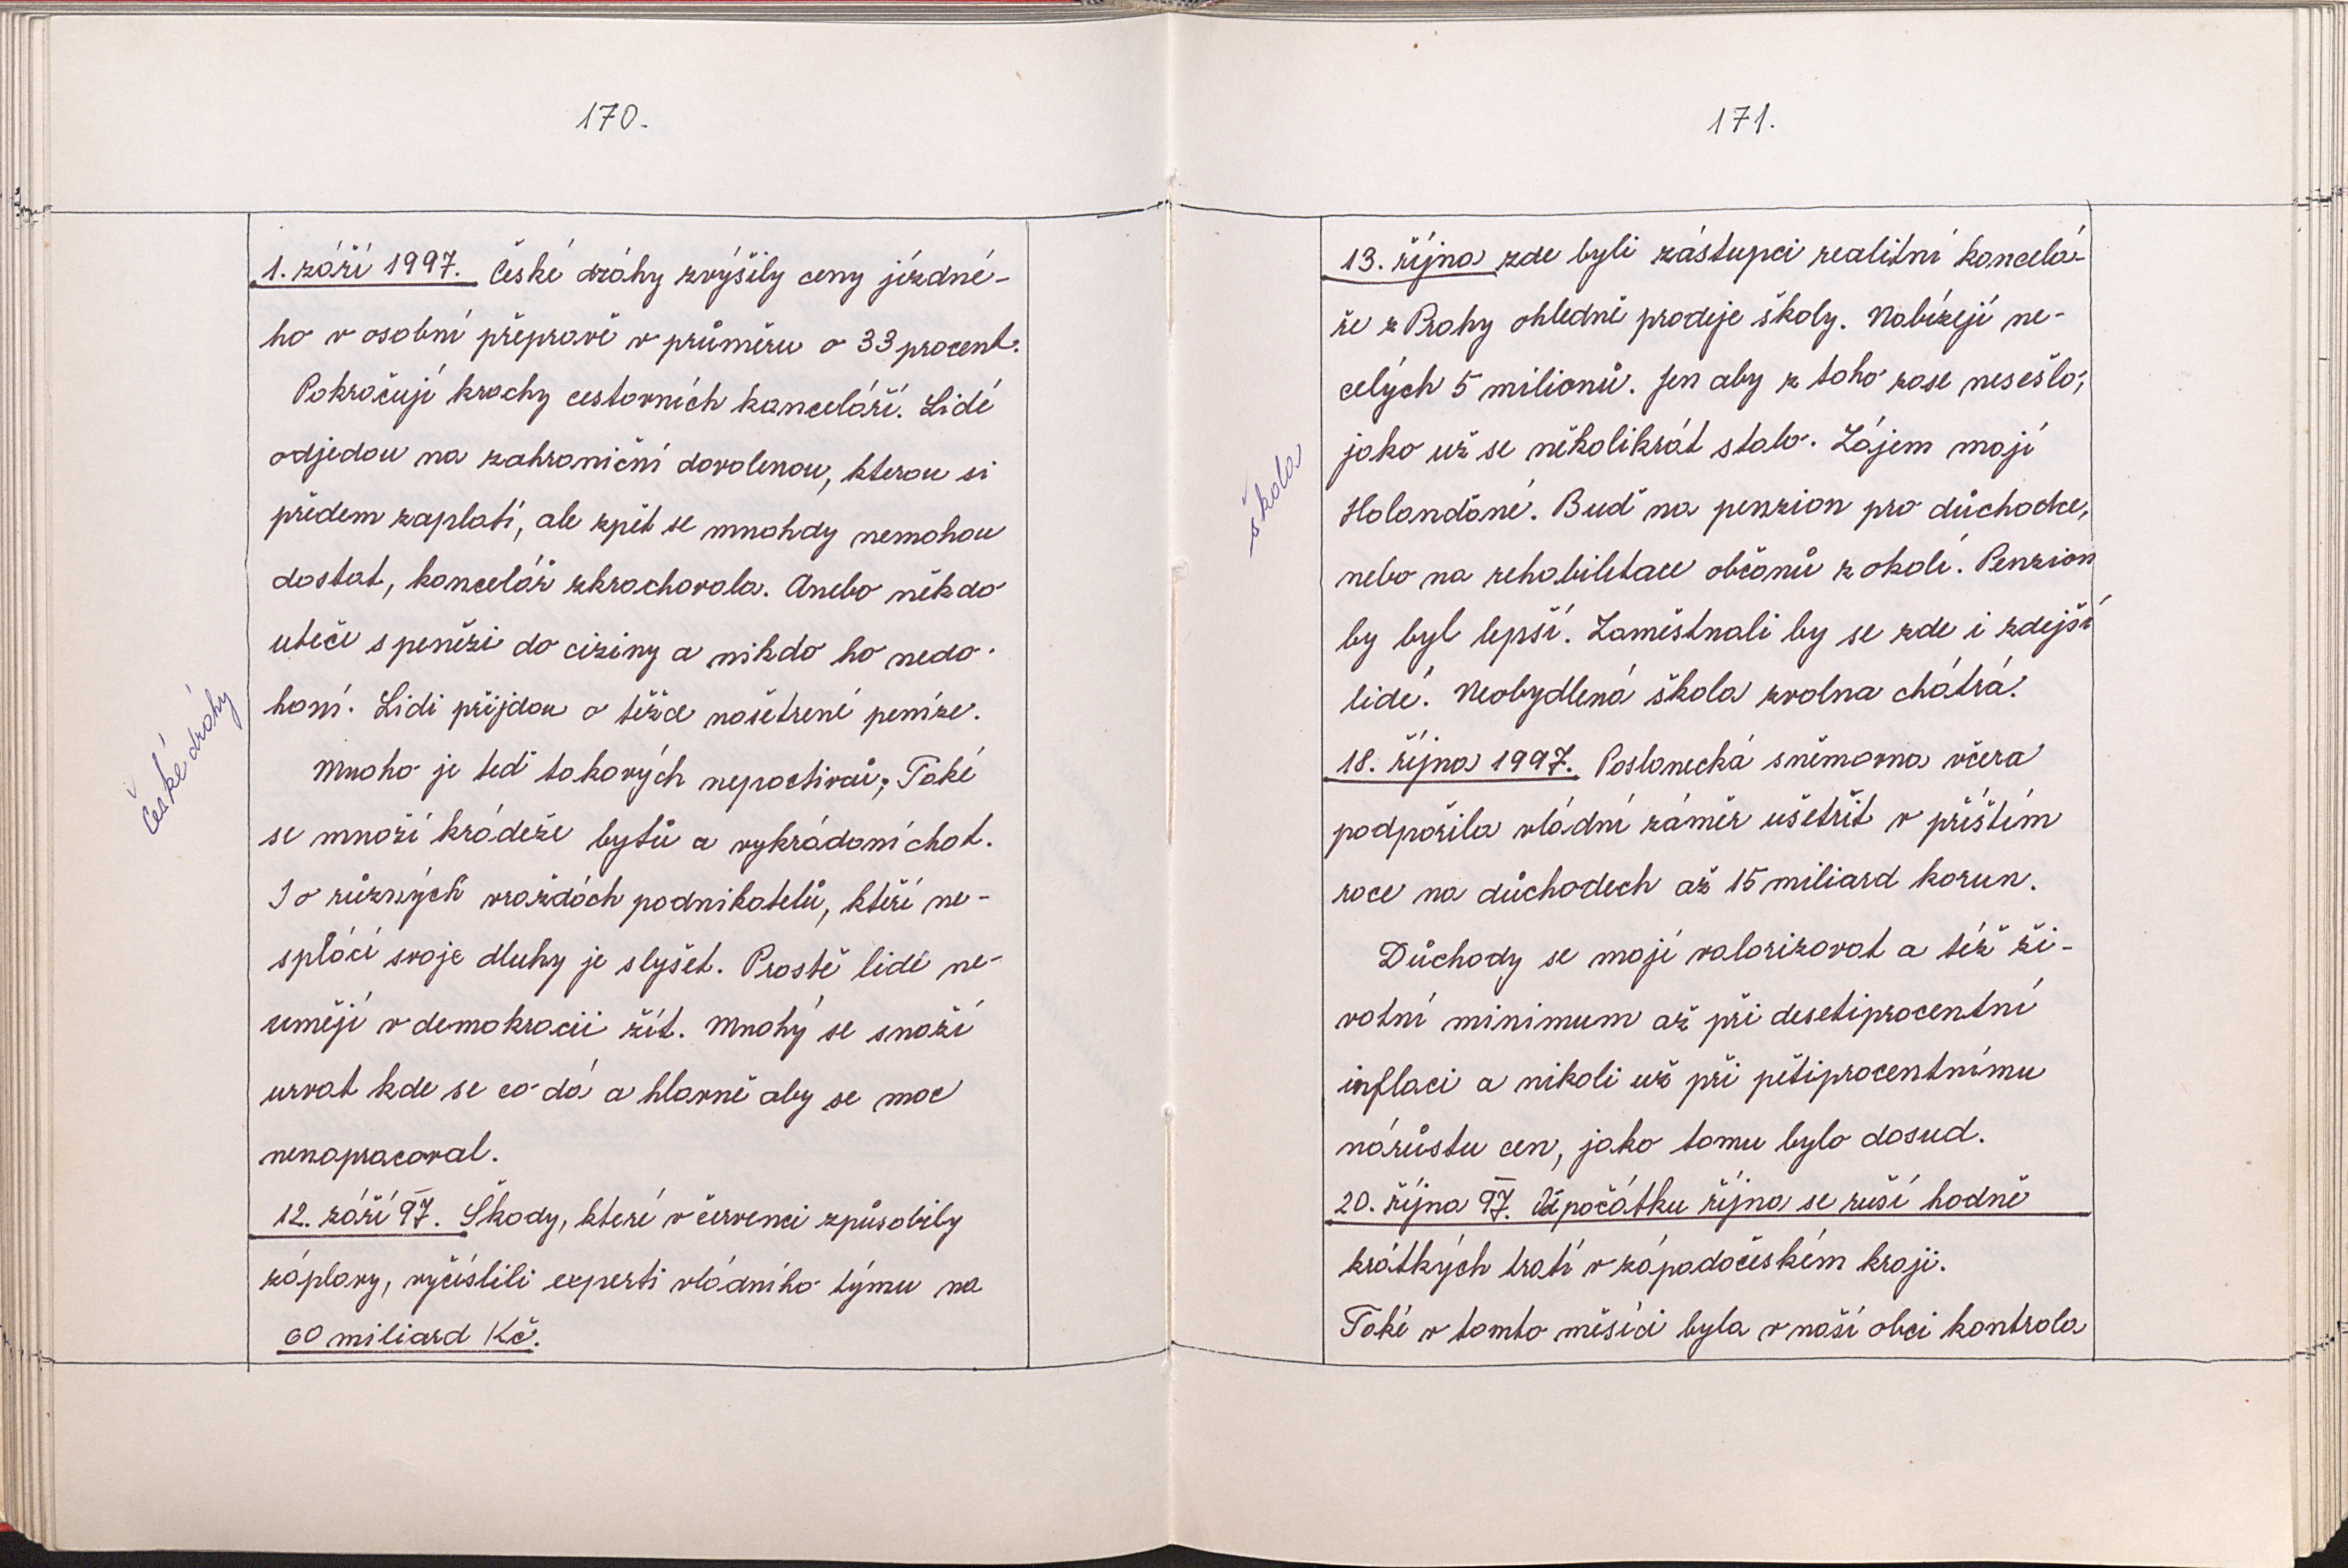 170.
České dráhy
1. září 1997. České dráhy zvýšily ceny jízdné-
ho v osobní přepravě v průměru o 33 procent.
Pokračují krachy cestovních kanceláří. Lidé
odjedou na zahraniční dovolenou, kterou si
předem zaplatí, ale zpět se mnohdy nemohou
dostat, kancelář zkrachovala. Anebo někdo
uteče s penězi do ciziny a nikdo ho nedo-
honí. Lidi přijdou o těžce našetřené peníze.
Mnoho je teď takových nepoctivců; Také
se množí krádeže bytů a vykrádání chat.
I o různých vraždách podnikatelů, kteří ne-
splácí svoje dluhy je slyšet. Prostě lidé ne-
umějí v demokracii žít. Mnohý se snaží
urvat kde se co dá a hlavně aby se moc
nenapracoval.
12. září 97. Škody, které v červenci způsobily
záplavy, vyčíslili experti vládního týmu na
60 miliard Kč.
171.
škola
13. října zde byli zástupci realitní kancelá-
ře z Prahy ohledně prodeje školy. Nabízejí ne-
celých 5 milionů. Jen aby z toho zase nesešlo,
jako už se několikrát stalo. Zájem mají
Holanďané. Buď na penzion pro důchodce,
nebo na rehabilitace občanů z okolí. Penzion
by byl lepší. Zaměstnali by se zde i zdejší
lidé. Neobydlená škola zvolna chátrá.
18. října 1997. Poslanecká sněmovna včera
podpořila vládní záměr ušetřit v příštím
roce na důchodech až 15 miliard korun.
Důchody se mají valorizovat a též ži-
votní minimum až při desetiprocentní
inflaci a nikoli už při pětiprocentnímu
nárůstu cen, jako tomu bylo dosud.
20. října 97. Od počátku října se ruší hodně
krátkých tratí v západočeském kraji.
Také v tomto měsíci byla v naší obci kontrola